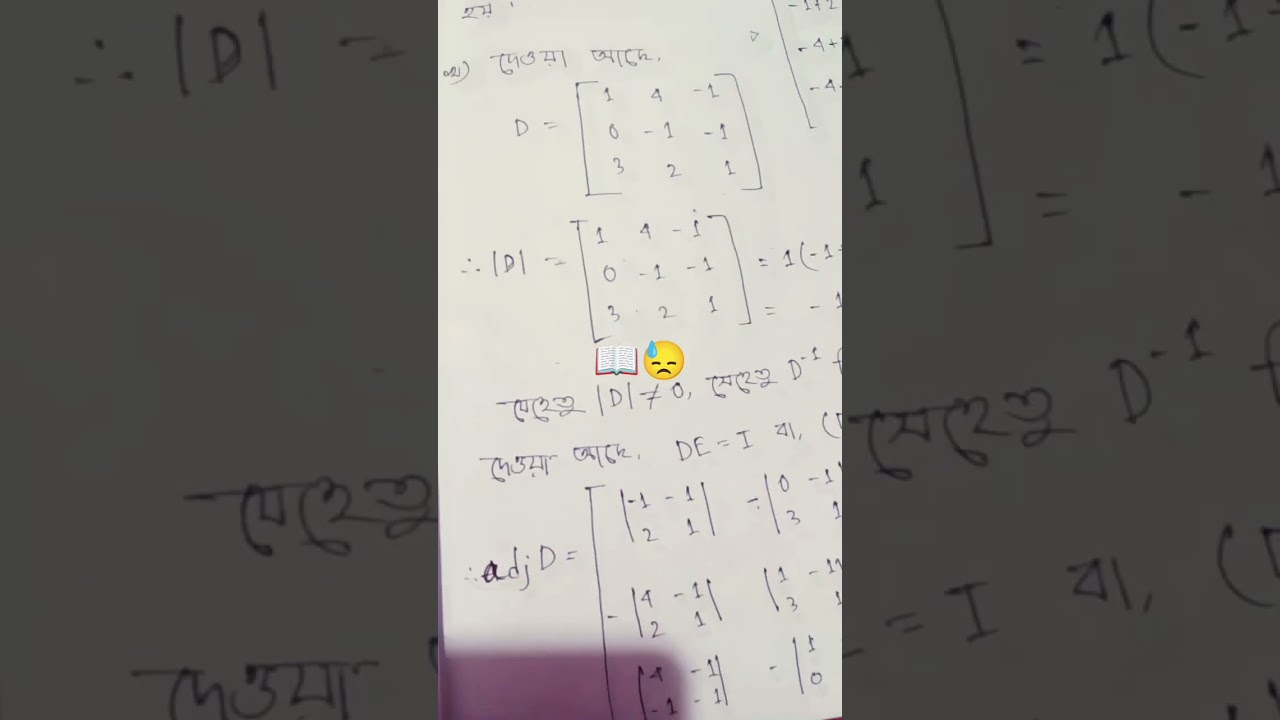 হয়।
-1+2
-4+
-4+
খ) দেওয়া আছে,
D = [1 4 -1
0 -1 -1
3 2 1]
∴ |D| = [1 4 -1
0 -1 -1
3 2 1] = 1(-1+
= -1
যেহেতু |D| ≠ 0, সেহেতু D⁻¹
দেওয়া আছে, DE = I বা, (
∴ adj D = [|-1 -1| -|0 -1|
|2 1| |3 1|
-|4 -1| |1 -1|
|2 1| |3 1|
|4 -1| -|1
|-1 -1| |0